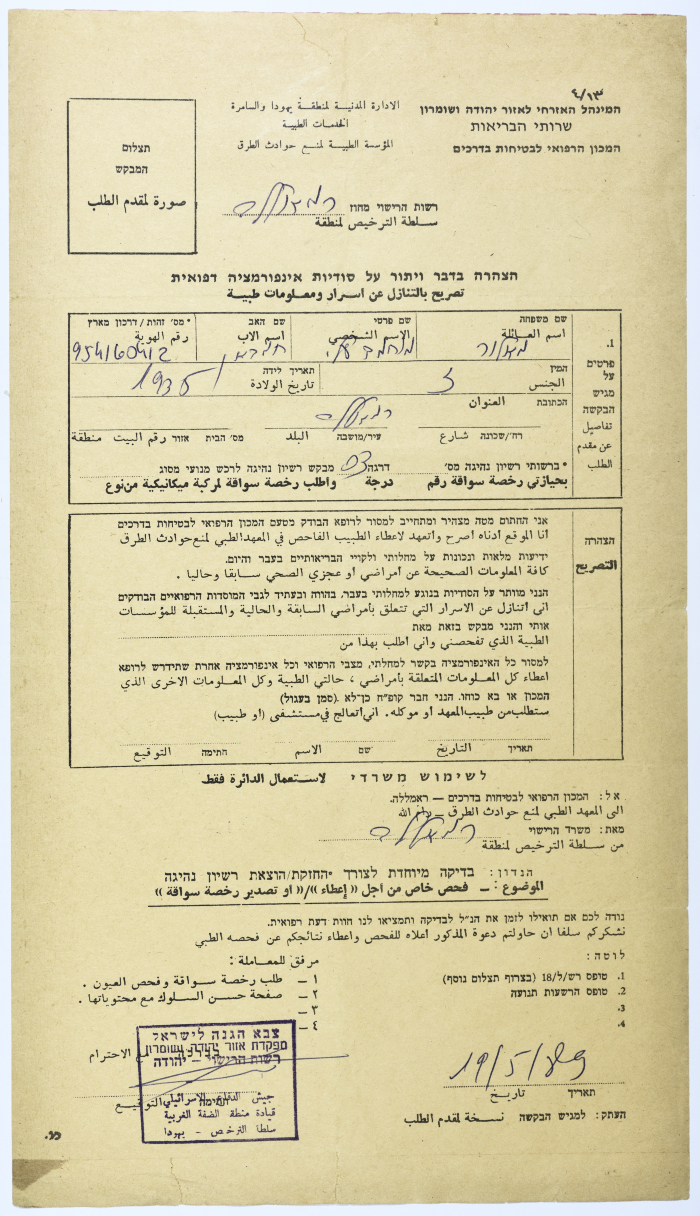 המינהל האזרחי לאזור יהודה ושומרון
שרותי הבריאות
המכון הרפואי לבטיחות בדרכים
الادارة المدنية لمنطقة يهودا والسامرة
الخدمات الطبية
المؤسسة الطبية لمنع حوادث الطرق
תצלום
המבקש
صورة لمقدم الطلب
רשות הרישוי מחוז
سلطة الترخيص لمنطقة
הצהרה בדבר ויתור על סודיות אינפורמציה רפואית
تصريح بالتنازل عن اسرار ومعلومات طبية
1.
פרטים
על
מגיש
הבקשה
تفاصيل
عن مقدم
الطلب
שם משפחה שם פרטי שם האב * מס' זהות/דרכון מארץ
اسم العائلة الاسم الشخصي اسم الاب رقم الهوية
954160412
המין תאריך לידה
الجنس ז تاريخ الولادة 1935
הכתובת العنوان
רח'/שכונה شارع עיר/מושבה البلد מס' הבית אזור رقم البيت منطقة
* ברשותי רשיון נהיגה מס' דרגה 03 מבקש רשיון נהיגה לרכש מנועי מסוג
بحيازتي رخصة سواقة رقم درجة واطلب رخصة سواقة لمركبة ميكانيكية من نوع
הצהרה
التصريح
אני החתום מטה מצהיר ומתחייב למסור לרופא הבודק מטעם המכון הרפואי לבטיחות בדרכים
أنا الموقع أدناه أصرح وأتعهد لاعطاء الطبيب الفاحص في المعهد الطبي لمنع حوادث الطرق
ידיעות מלאות ונכונות על מחלותי ולקויי הבריאותיים בעבר והיום.
كافة المعلومات الصحيحة عن أمراضي أو عجزي الصحي سابقا وحاليا .
הנני מוותר על הסודיות בנוגע למחלותי בעבר, בהווה ובעתיד לגבי המוסדות הרפואיים הבודקים
اني أتنازل عن الاسرار التي تتعلق بأمراضي السابقة والحالية والمستقبلة للمؤسسات
אותי והנני מבקש בזאת מאת
الطبية الذي تفحصني واني أطلب بهذا من
למסור כל האינפורמציה בקשר למחלתי, מצבי הרפואי וכל אינפורמציה אחרת שתידרש לרופא
اعطاء كل المعلومات المتعلقة بأمراضي ، حالتي الطبية وكل المعلومات الاخرى الذي
המכון או בא כוחו. הנני חבר קופ״ח כן־לא (סמן בעגול)
ستطلب من طبيب المعهد أو موكله. اني أتعالج في مستشفى (أو طبيب)
תאריך التاريخ שם الاسم חתימה التوقيع
לשימוש משרדי لاستعمال الدائرة فقط
אל: המכון הרפואי לבטיחות בדרכים — ראמללה.
الى المعهد الطبي لمنع حوادث الطرق — رام الله
מאת: משרד הרישוי
من سلطة الترخيص لمنطقة
הנדון: בדיקה מיוחדת לצורך *החזקת/הוצאת רשיון נהיגה
الموضوع : — فحص خاص من اجل « إعطاء »/« او تصدير رخصة سواقة »
נודה לכם אם תואילו לזמן את הנ״ל לבדיקה ותמציאו לנו חוות דעת רפואית.
نشكركم سلفا ان حاولتم دعوة المذكور أعلاه للفحص واعطاء نتائجكم عن فحصه الطبي
לוטה: مرفق للمعاملة :
1. טופס רש/ל/18 (בצרוף תצלום נוסף) ١ — طلب رخصة سواقة وفحص العيون .
2. טופס הרשעות תנועה ٢ — صفحة حسن السلوك مع محتوياتها .
3. ٣ —
4. ٤ —
الاحترام
צבא הגנה לישראל
מפקדת אזור יהודה ושומרון
רשות הרישוי - יהודה
جيش الدفاع الاسرائيلي
قيادة منطقة الضفة الغربية
سلطة الترخيص - يهودا
חתימה التوقيع
19/5/
תאריך تاريخ
העתק: למגיש הבקשה نسخة لمقدم الطلب